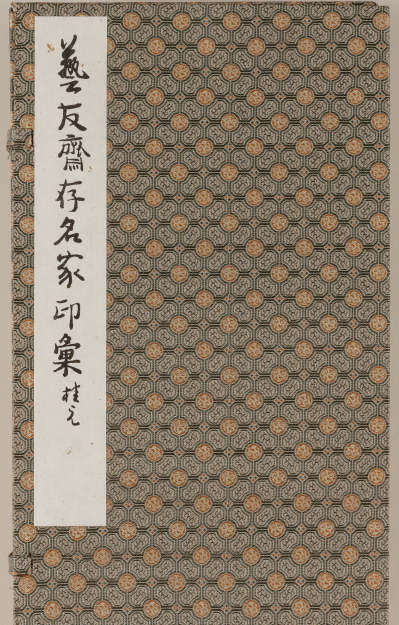 藝友齋存名家印彙 桂元